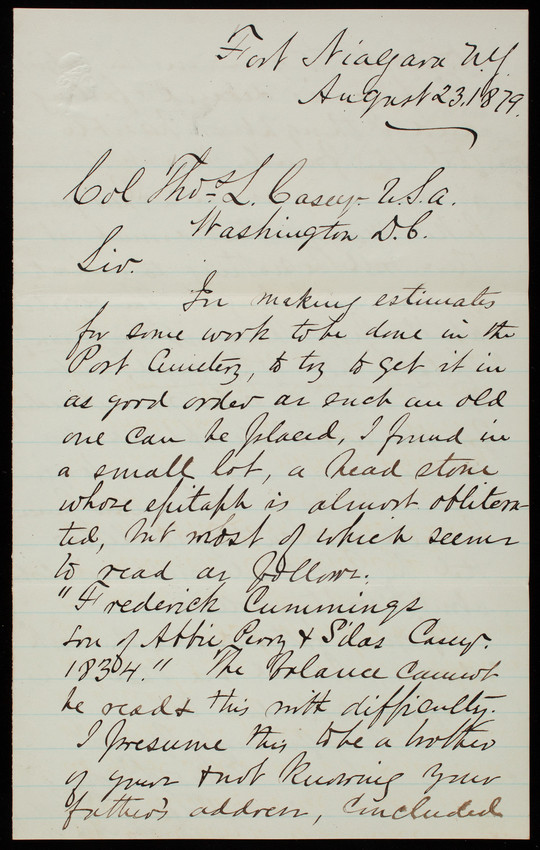 Fort Niagara N.Y.
August 23, 1879.
Col Thos L. Casey. U.S.A.
Washington D.C.
Sir.
In making estimates
for some work to be done in the
Post Cemetery, to try to get it in
as good order as such an old
one can be placed, I found in
a small lot, a head stone
whose epitaph is almost oblitera-
ted, but most of which seems
to read as follows.
"Frederick Cummings
son of Abbie Perry & Silas Casey.
1834." The balance cannot
be read & this with difficulty.
I presume this to be a brother
of yours & not knowing your
father's address, concluded